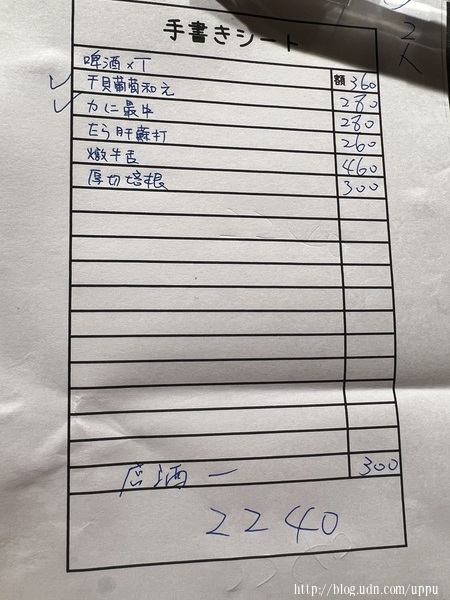 2人
手書きシート
啤酒×T 額 360
干貝葡萄和え 280
カに最中 280
たら肝蘇打 260
燉牛舌 460
厚切培根 300
店酒一 300
2240
http://blog.udn.com/uppu